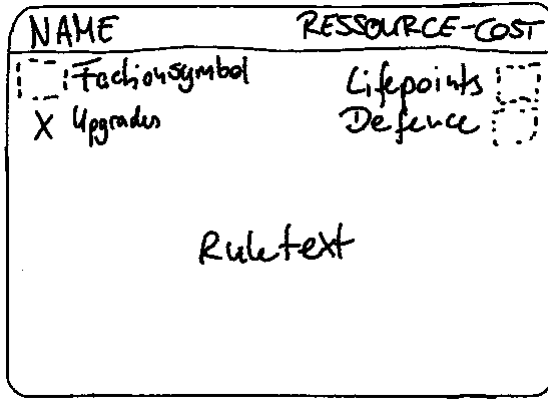 NAME RESSOURCE-COST
Factionsymbol Lifepoints
X Upgrades Defence
Ruletext